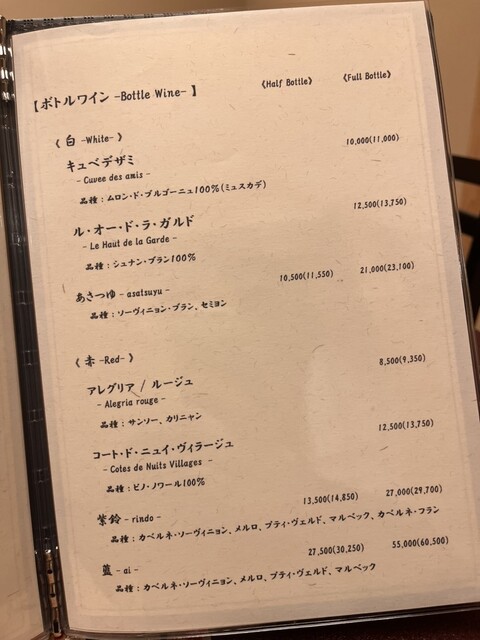 《Half Bottle》 《Full Bottle》
【ボトルワイン -Bottle Wine- 】
《 白 -White- 》
キュベデザミ 10,000(11,000)
- Cuvee des amis -
品種：ムロン・ド・ブルゴーニュ100%(ミュスカデ)
ル・オー・ド・ラ・ガルド 12,500(13,750)
- Le Haut de la Garde -
品種：シュナン・ブラン100%
あさつゆ - asatsuyu - 10,500(11,550) 21,000(23,100)
品種：ソーヴィニョン・ブラン、セミヨン
《 赤 -Red- 》
アレグリア / ルージュ 8,500(9,350)
- Alegria rouge -
品種：サンソー、カリニャン
コート・ド・ニュイ・ヴィラージュ 12,500(13,750)
- Cotes de Nuits Villages -
品種：ピノ・ノワール100%
紫鈴 - rindo - 13,500(14,850) 27,000(29,700)
品種：カベルネ・ソーヴィニョン、メルロ、プティ・ヴェルド、マルベック、カベルネ・フラン
藍 - ai - 27,500(30,250) 55,000(60,500)
品種：カベルネ・ソーヴィニョン、メルロ、プティ・ヴェルド、マルベック